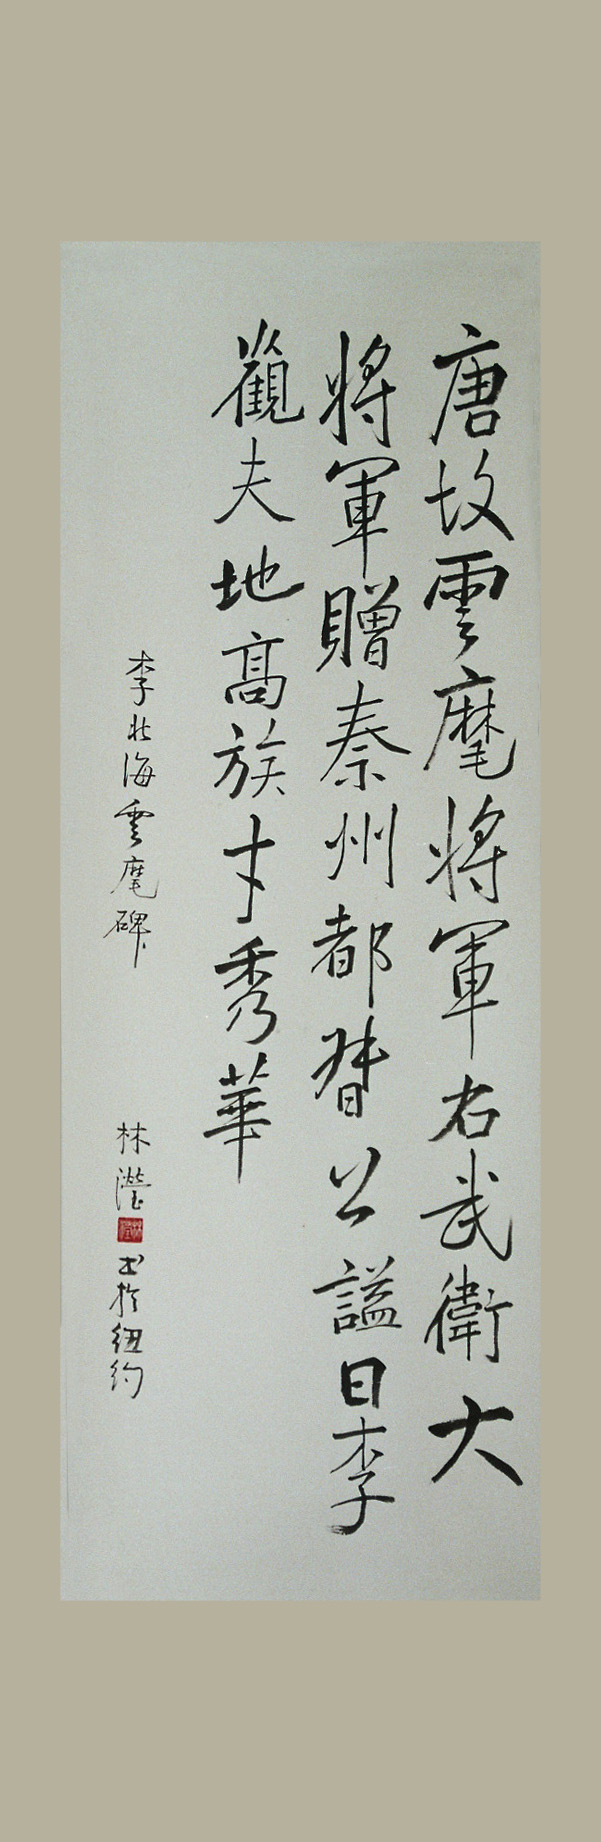 唐故雲麾將軍右武衛大
將軍贈秦州都督公謚曰李
觀夫地高族才秀華
李北海雲麾碑
林瀅
书於纽约